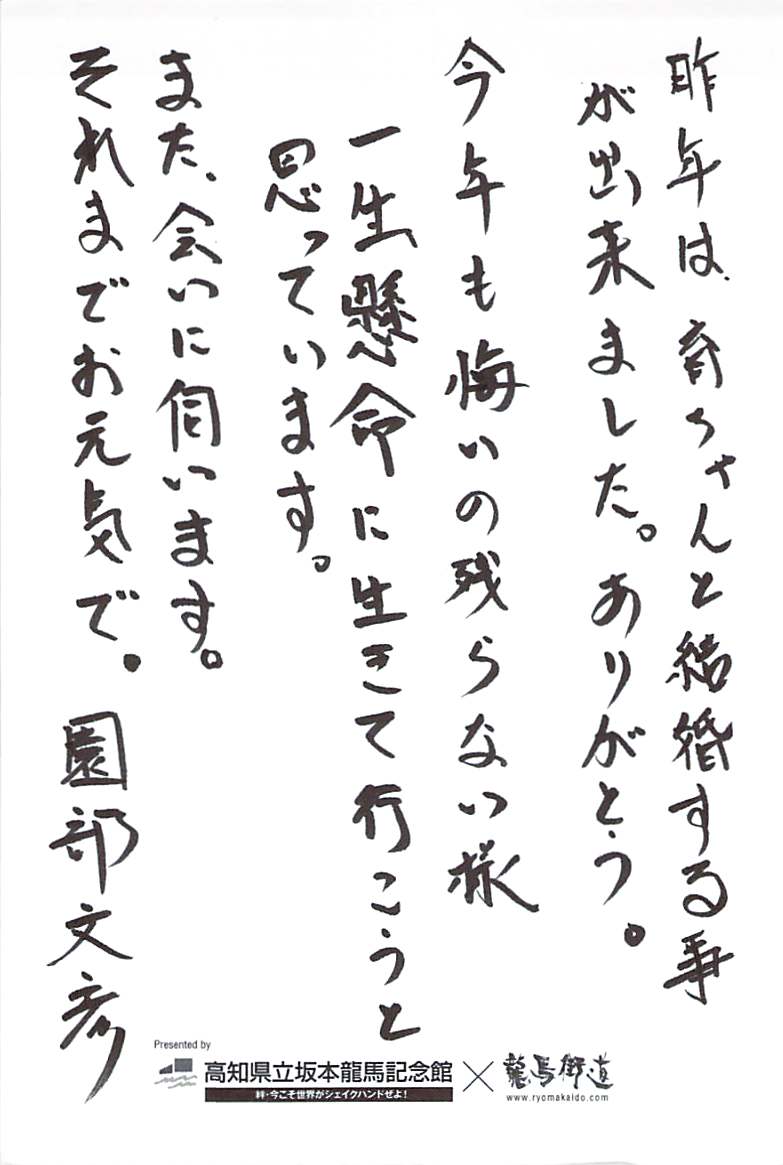 昨年は、育ちゃんと結婚する事
が出来ました。ありがとう。
今年も悔いの残らない様
一生懸命に生きて行こうと
思っています。
また、会いに伺います。
それまでお元気で。 園部文彦
Presented by
高知県立坂本龍馬記念館 × 龍馬街道
絆・今こそ世界がシェイクハンドぜよ!
www.ryomakaido.com